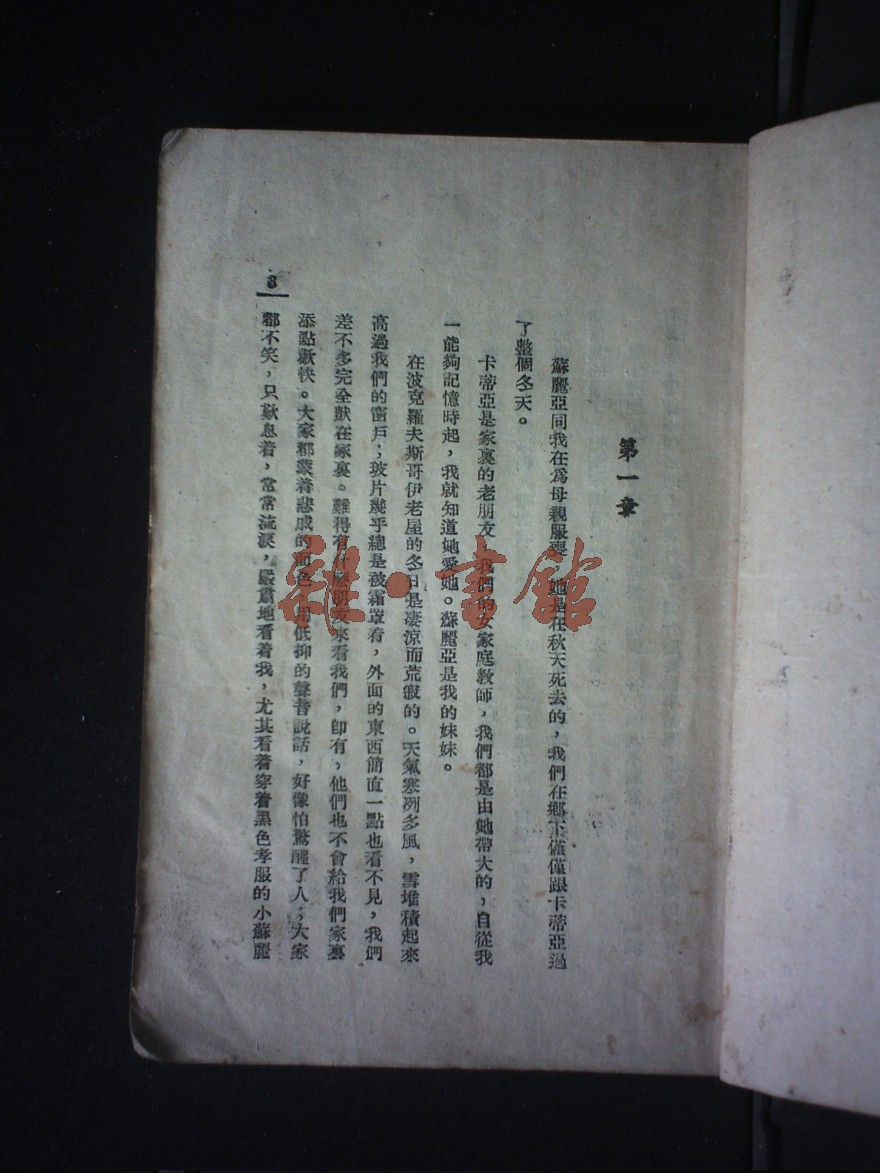 第一章
蘇麗亞同我在爲母親服喪，她是在秋天死去的，我們在鄉下僅僅跟卡蒂亞過
了整個冬天。
卡蒂亞是家裏的老朋友，我們的女家庭教師，我們都是由她帶大的，自從我
一能夠記憶時起，我就知道她愛她。蘇麗亞是我的妹妹。
在波克羅夫斯哥伊老屋的冬日是凄涼而荒寂的。天氣寒冽多風，雪堆積起來
高過我們的窗戶；玻片幾乎總是被霜罩着，外面的東西簡直一點也看不見，我們
差不多完全獃在家裏。難得有什麽朋友來看我們，卽有，他們也不會給我們家裏
添點歡快。大家都蒙着悲戚的面色，用低抑的聲音說話，好像怕驚醒了人；大家
都不笑，只歎息着，常常流淚，嚴肅地看着我，尤其看着穿着黑色孝服的小蘇麗
3
雜·書館